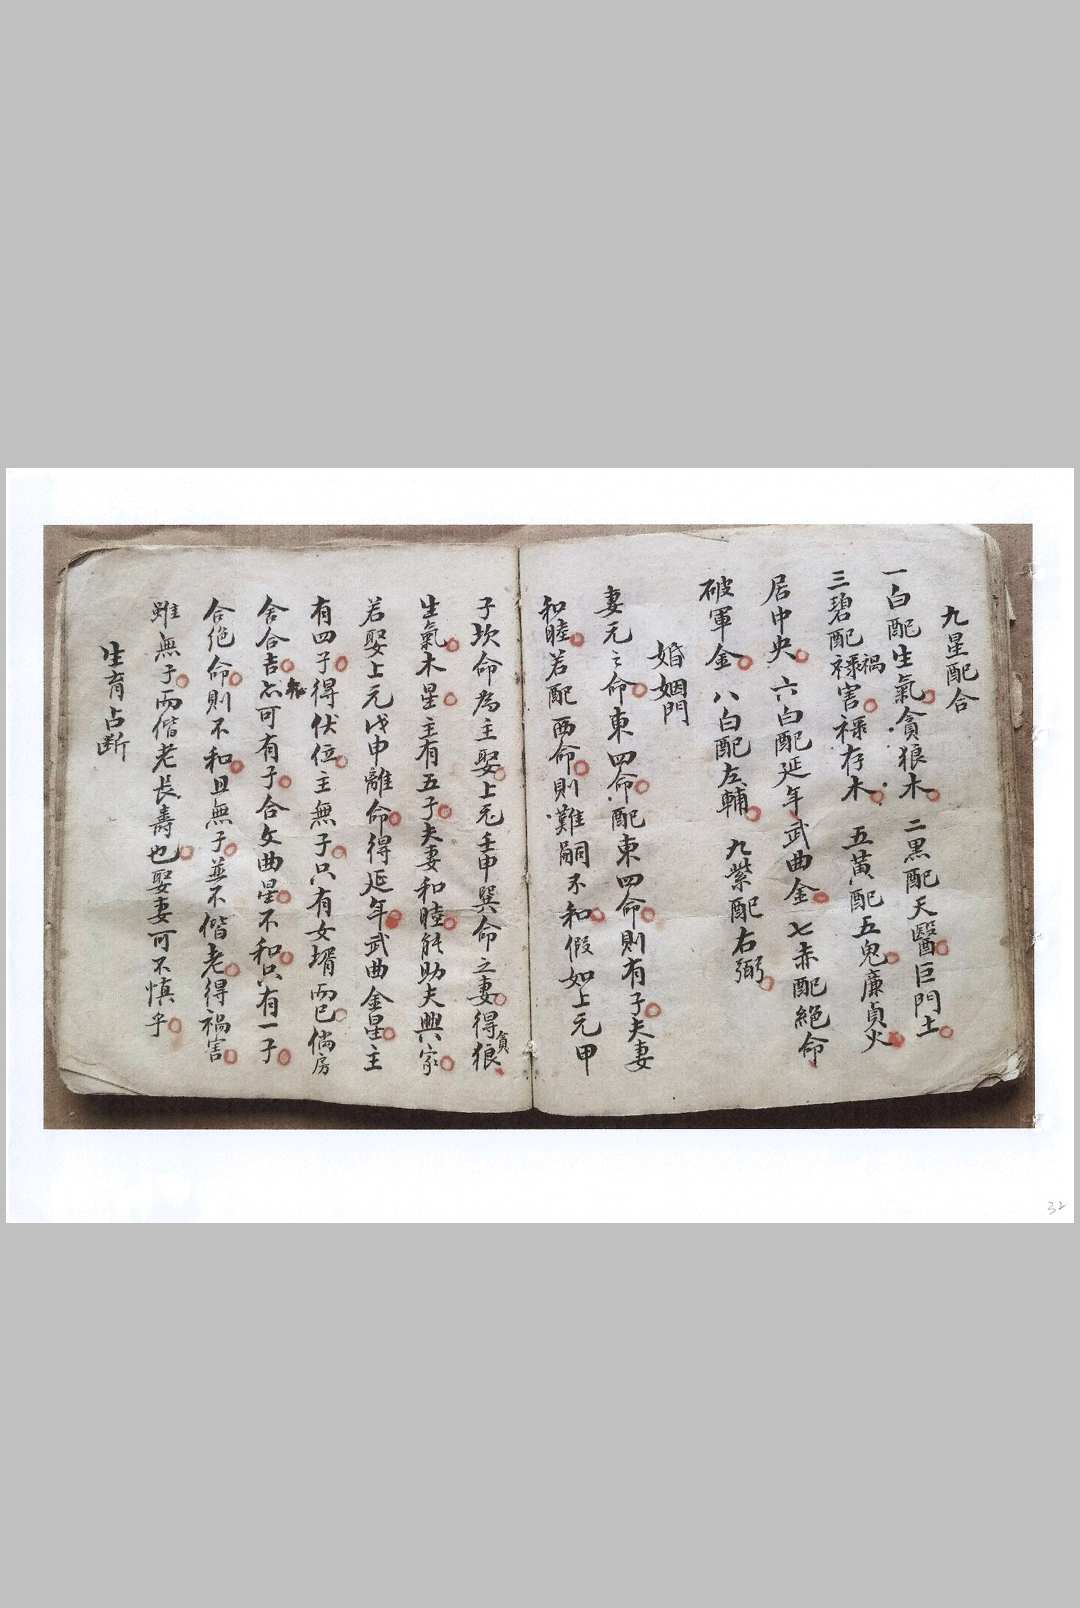 九星配合
一白配生氣貪狼木 二黑配天醫巨門土
三碧配禄禍害禄存木 五黃配五鬼廉貞火
居中央 六白配延年武曲金 七赤配絕命
破軍金 八白配左輔 九紫配右弼
婚姻門
妻元之命東四命配東四命則有子夫妻
和睦若配西命則難嗣不和假如上元甲
子坎命為主娶上元壬申巽命之妻得貪狼
生氣木星主有五子夫妻和睦能助夫興家
若娶上元戊申離命得延年武曲金星主
有四子得伏位主無子只有女壻而已倘房
舍合吉亦可有子合文曲星不和只有一子
合绝命則不和且無子並不偕老得禍害
雖無子而偕老長壽也娶妻可不慎乎
生育占断
32